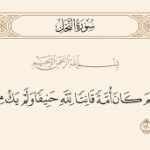 سُورَةُ النَّحْلِ
بِسْمِ اللَّهِ الرَّحْمَٰنِ الرَّحِيمِ
كَانَ أُمَّةً قَانِتًا لِلَّهِ حَنِيفًا وَلَمْ يَكُ